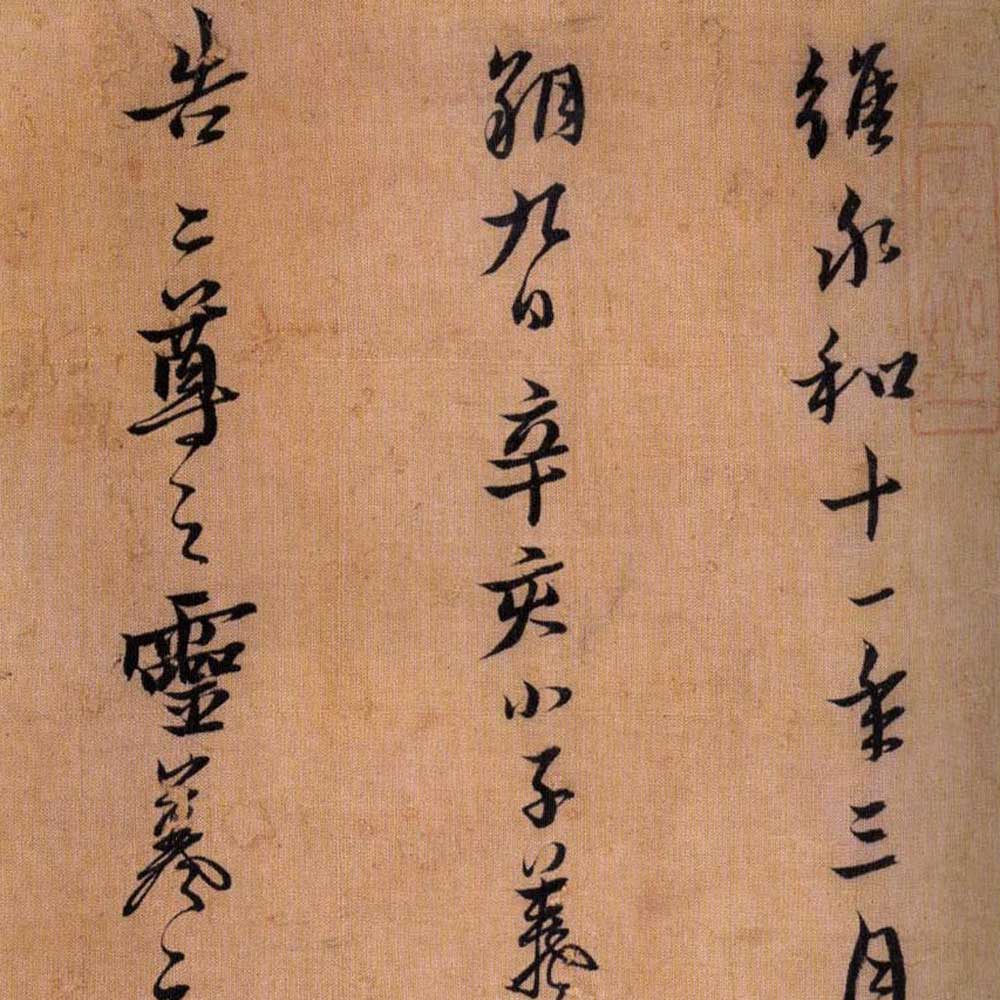 維永和十一年三月
朔九日辛亥小子羲
告二尊之靈羲之